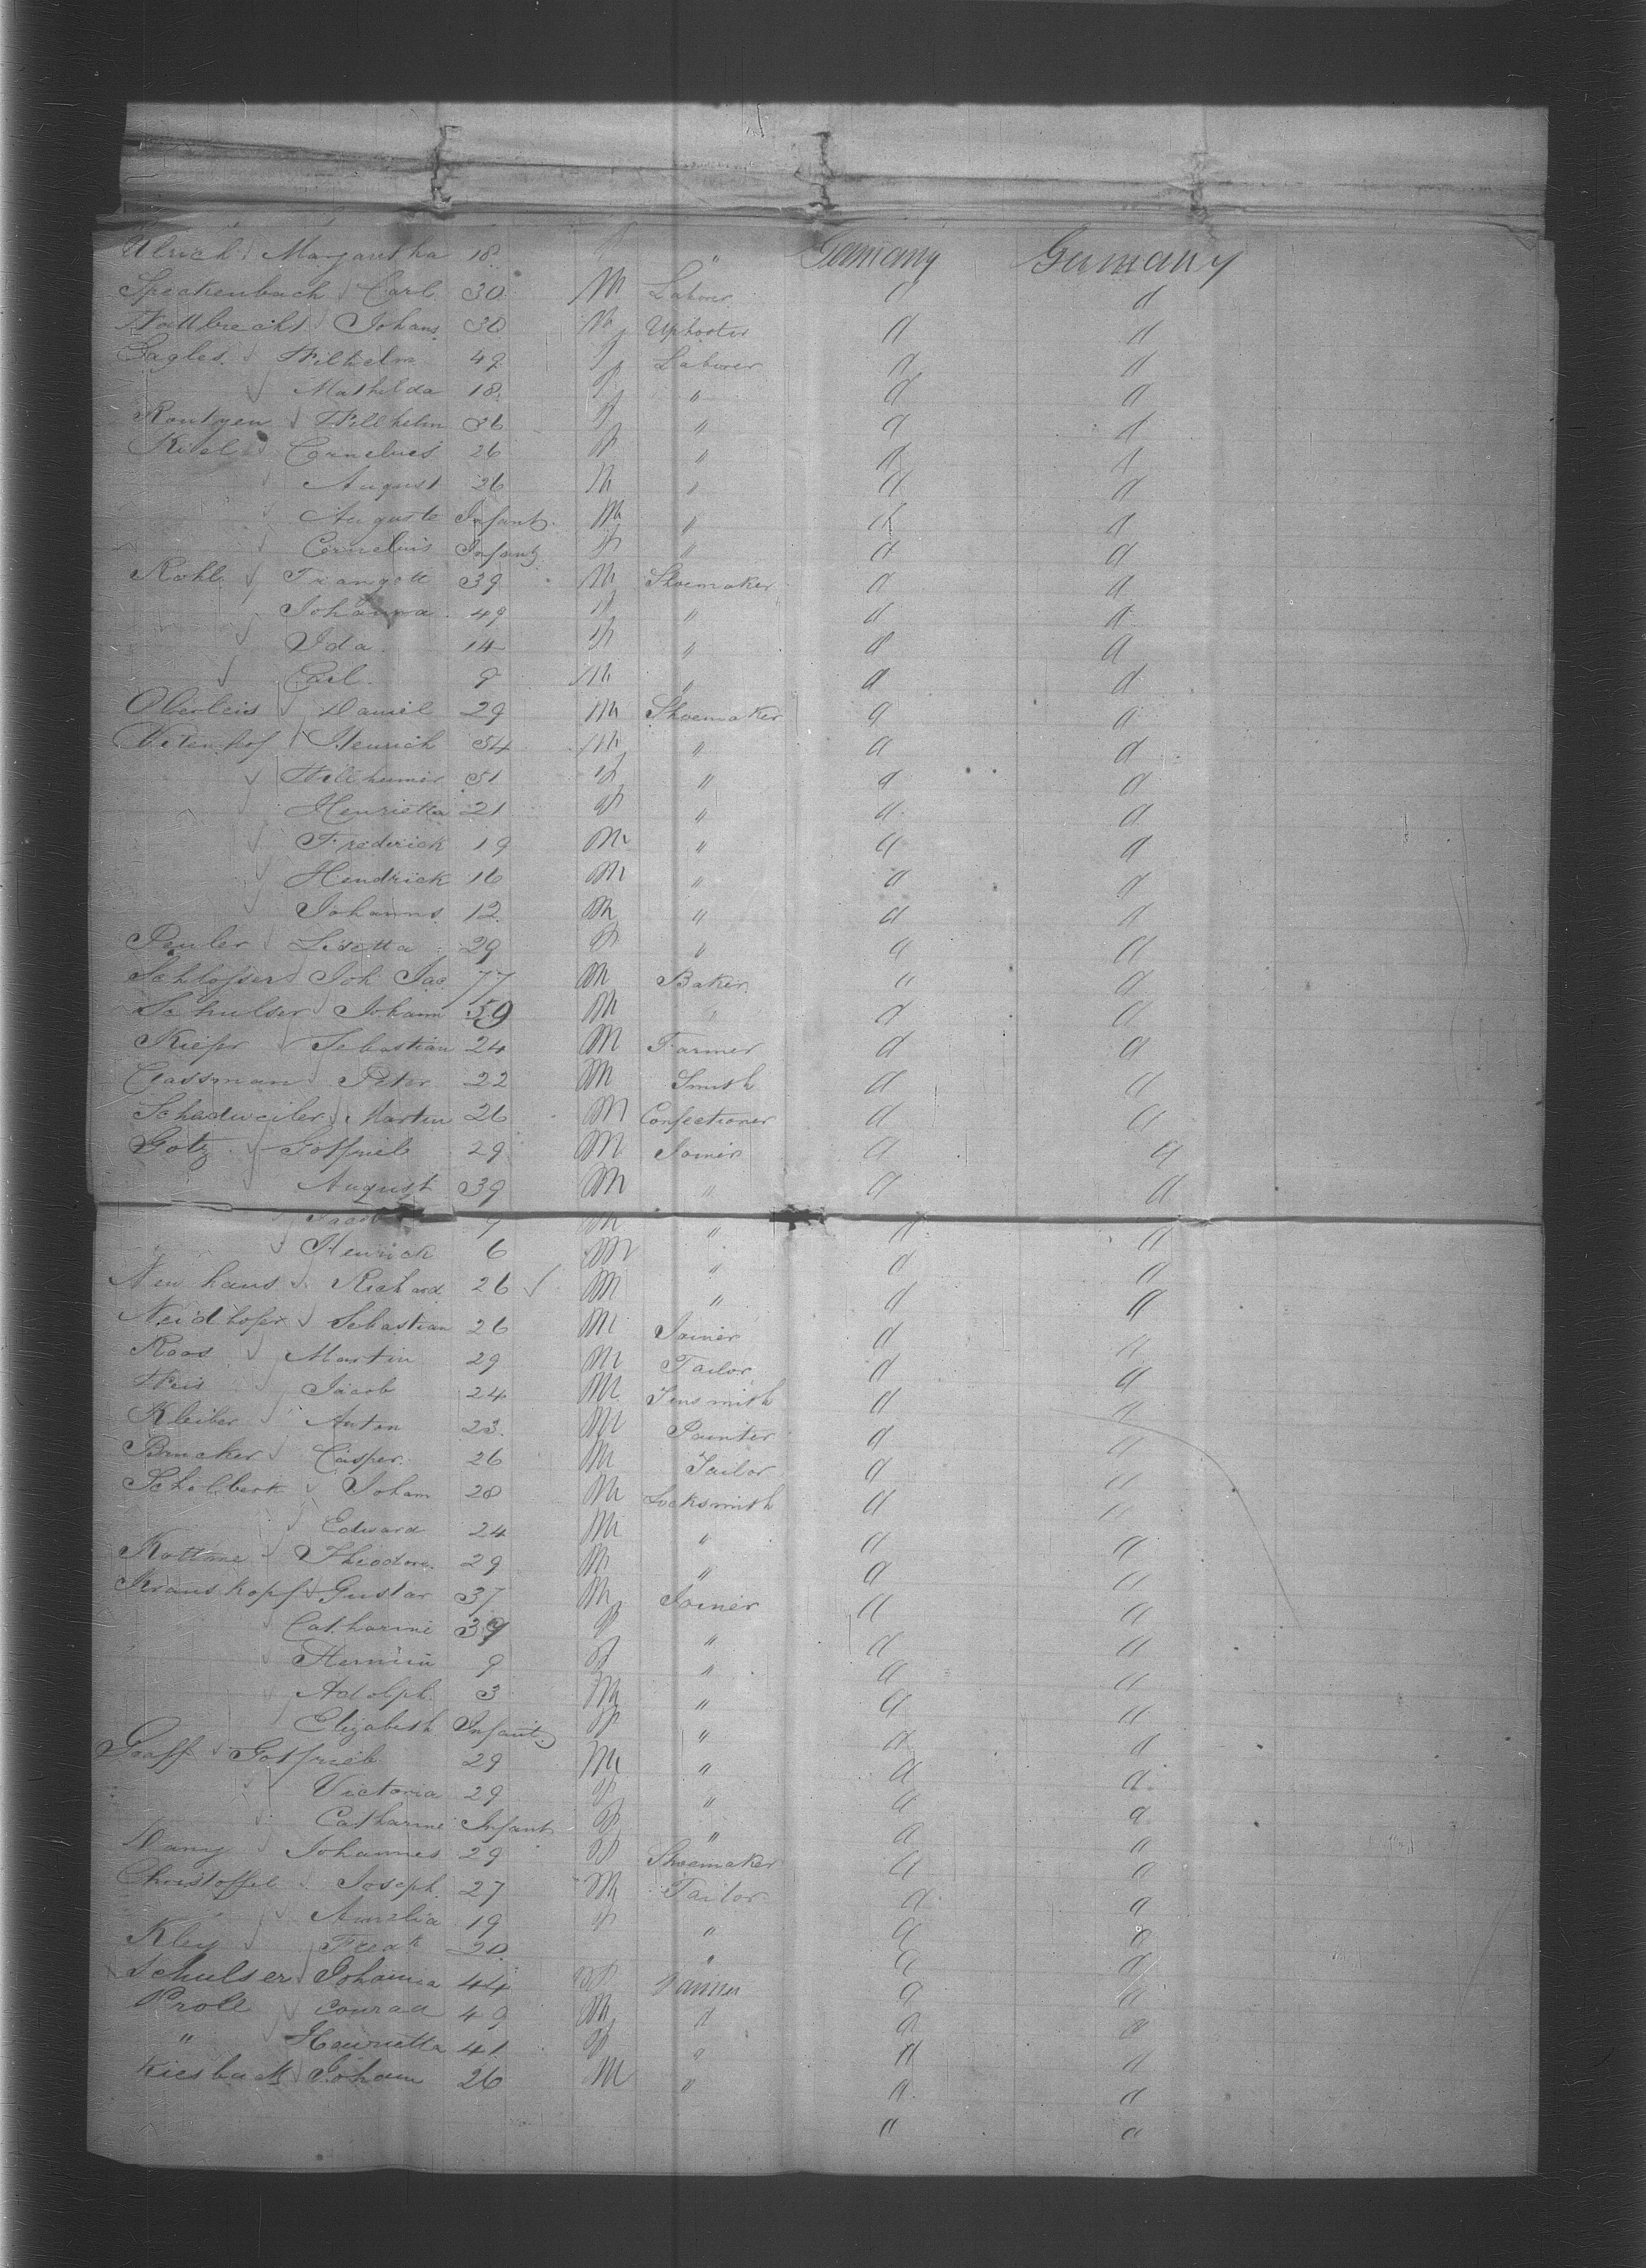 Ulrich Margaretha 18 f " Germany Germany
Speckenbach Carl 30 M Laborer " "
Wallbrecht Johans 30 M Uphoster " "
Gagles Wilhelm 49 f Laborer " "
Mathilda 18 f " " "
Rontgen Willhelm 36 f " " "
Kisel Cornelius 26 f " " "
August 26 M " " "
Auguste Infant M " " "
Cornelius Infant f " " "
Kohl 39 M Shoemaker " "
Johanna 49 f " " "
Ida 14 f " " "
Carl 9 M " " "
Oberleis Daniel 29 M Shoemaker " "
Henrich 54 M " " "
51 f " " "
Henrietta 21 f " " "
Frederick 19 M " " "
Hendrick 16 M " " "
Johanns 12 M " " "
Peuler Lisetta 29 f " " "
Schlosser Joh Jac 77 M Baker " "
Schulser Johann 59 M " " "
Kiefer Sebastian 24 M Farmer " "
Classman Peter 22 M Smith " "
Schadweiler Martin 26 M Confectioner " "
Gotz Gottfrieb 29 M Joiner " "
August 39 M " " "
Jacob 9 M " " "
Henrick 6 M " " "
Newhaus Richard 26 M " " "
Neidhofer Sebastian 26 M Joiner " "
Roos Martin 29 M Tailor " "
Weis Jacob 24 M Tinsmith " "
Kleiber Anton 23 M Painter " "
Brucker Casper 26 M Tailor " "
Schellberk Joham 28 M Locksmith " "
Edward 24 M " " "
Theodore 29 M " " "
Kranskopf Gustav 37 M Joiner " "
Catharine 39 f " " "
Hermin 9 f " " "
Adolph 3 M " " "
Elizabeth Infant f " " "
Graff Gotfrieb 29 M " " "
Victoria 29 f " " "
Catharine Infant f " " "
Johannes 29 f Shoemaker " "
Christoffel Joseph 27 M Tailor " "
Amelia 19 f " " "
Kley Fredk 20 " " "
Schulser Johanna 44 f " "
Proll Conrad 49 M " " "
" Henrietta 41 f " " "
Kiesback Joham 26 M " " "
" "